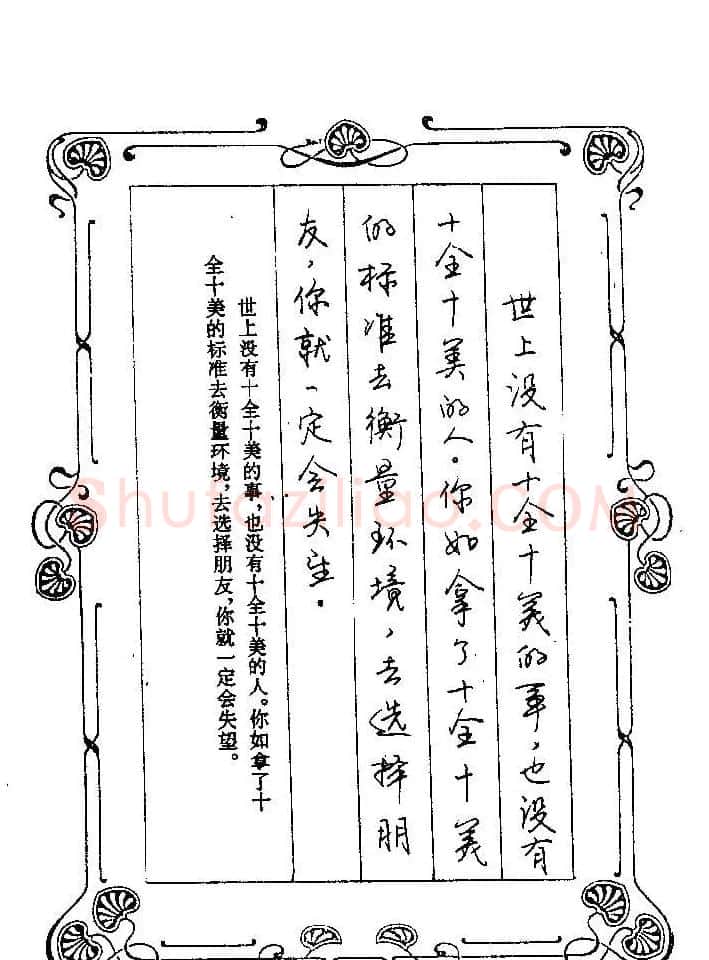 世上没有十全十美的事，也没有
十全十美的人。你如拿了十全十美
的标准去衡量环境，去选择朋
友，你就一定会失望。
世上没有十全十美的事，也没有十全十美的人。你如拿了十
全十美的标准去衡量环境，去选择朋友，你就一定会失望。
Shufaziliao.COM